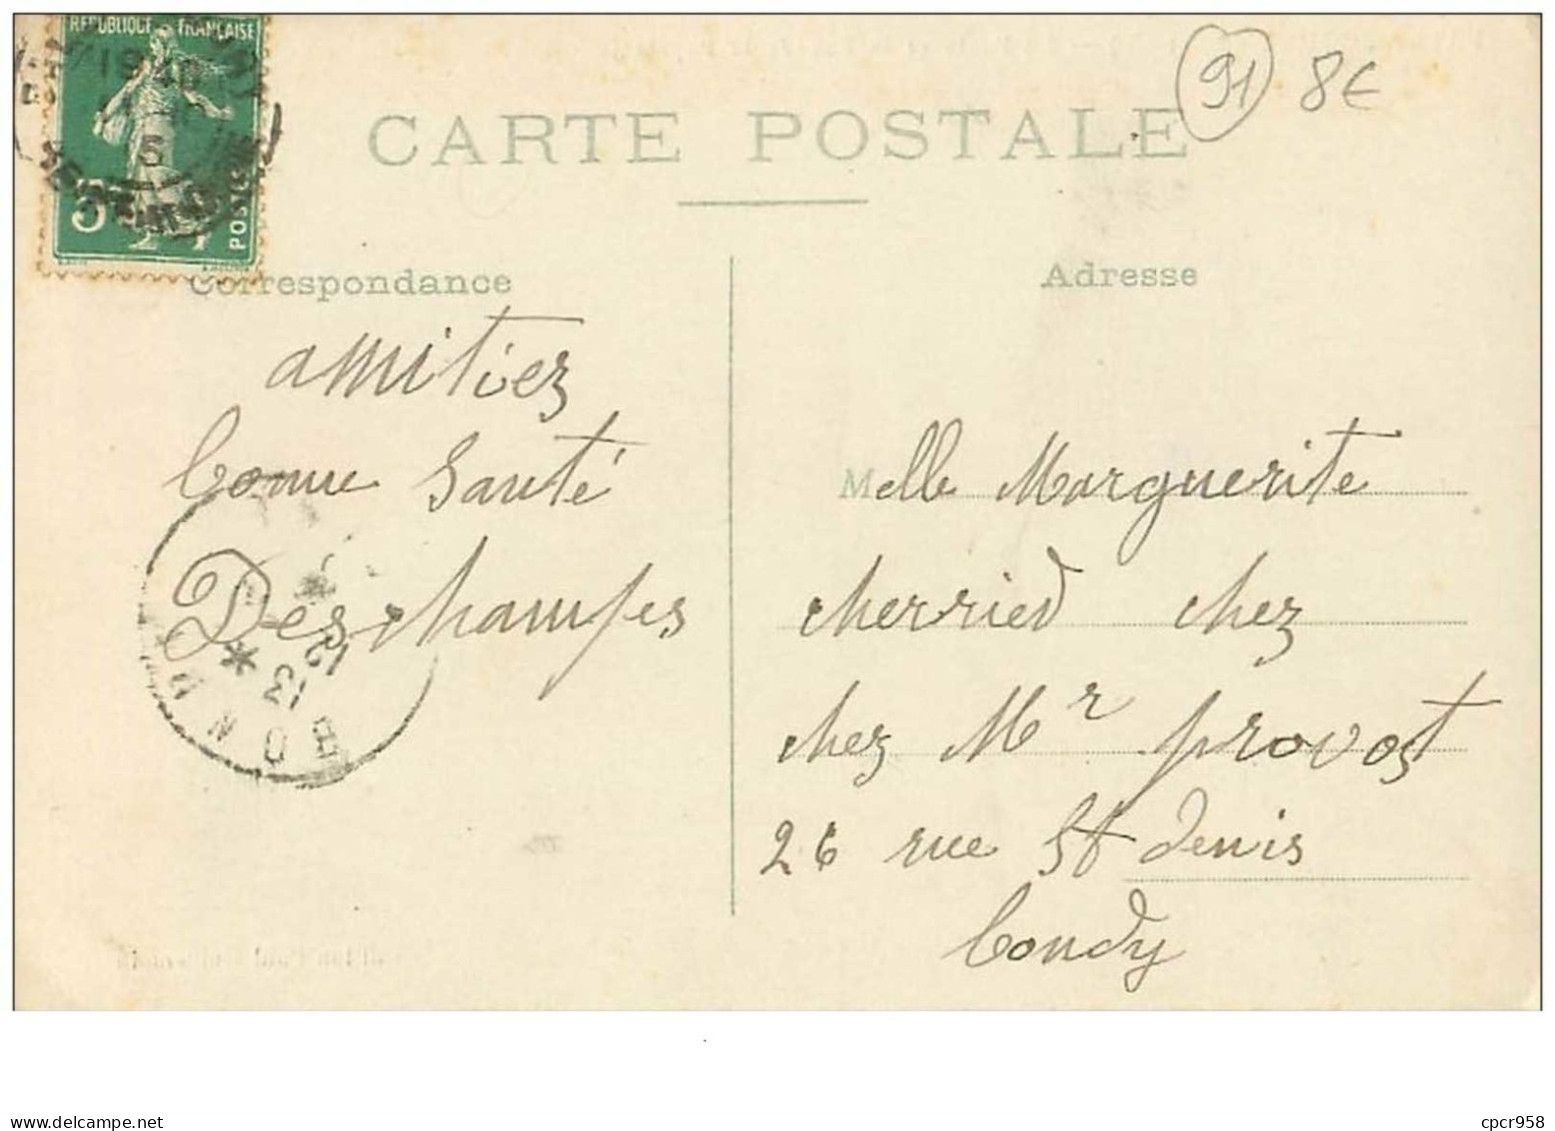 REPUBLIQUE FRANÇAISE
5
POSTES
CARTE POSTALE
91
8€
Correspondance
Adresse
amitiez
bonne santé
Deschamps
Melle Marguerite
cherried chez
chez Mr provost
26 rue St denis
bondy
13
BOND
www.delcampe.net
cpcr958